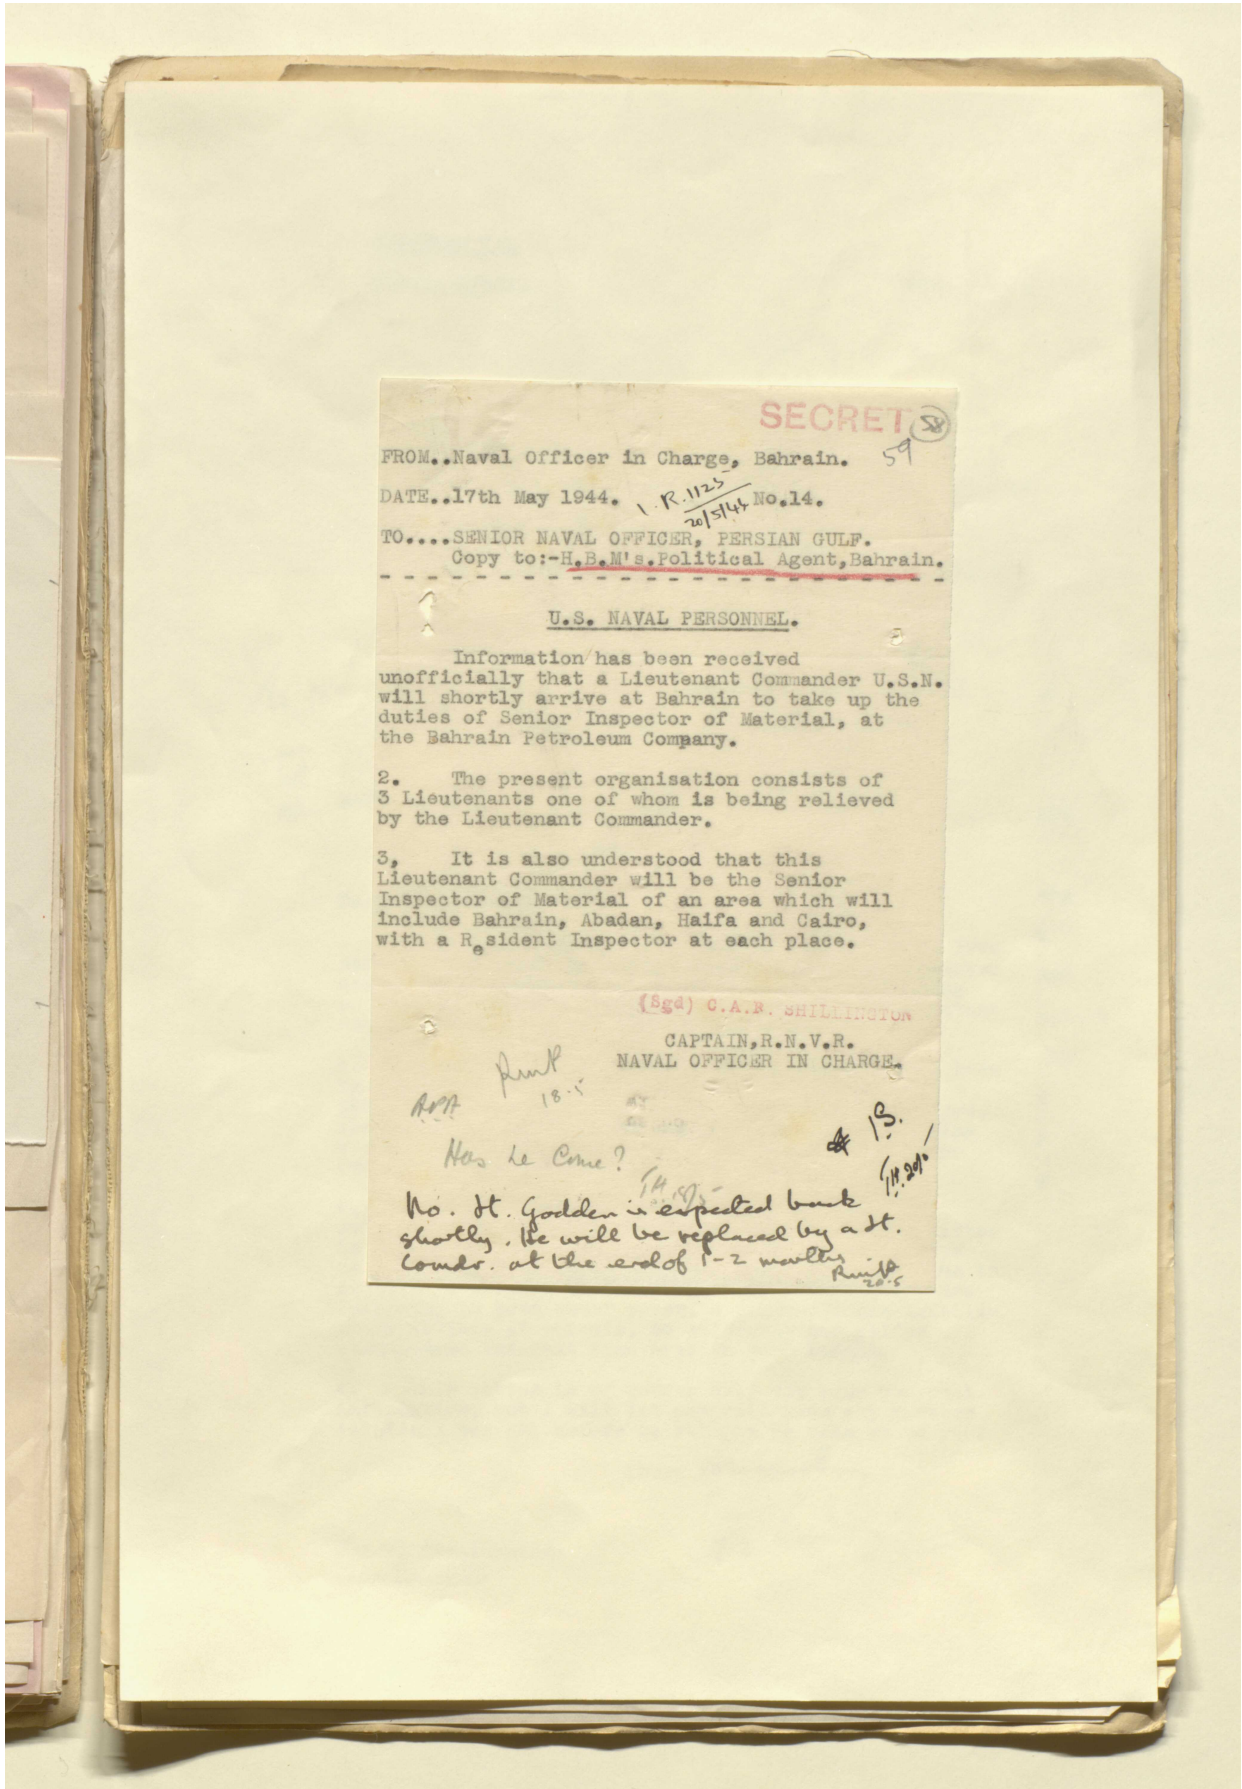 SECRET 58
59
FROM..Naval Officer in Charge, Bahrain.
DATE..17th May 1944. No.14.
I.R.1125
20/5/44
TO....SENIOR NAVAL OFFICER, PERSIAN GULF.
Copy to:-H.B.M's.Political Agent,Bahrain.
U.S. NAVAL PERSONNEL.
Information has been received
unofficially that a Lieutenant Commander U.S.N.
will shortly arrive at Bahrain to take up the
duties of Senior Inspector of Material, at
the Bahrain Petroleum Company.
2. The present organisation consists of
3 Lieutenants one of whom is being relieved
by the Lieutenant Commander.
3, It is also understood that this
Lieutenant Commander will be the Senior
Inspector of Material of an area which will
include Bahrain, Abadan, Haifa and Cairo,
with a Resident Inspector at each place.
(Sgd) C.A.R. SHILLINGTON
CAPTAIN,R.N.V.R.
NAVAL OFFICER IN CHARGE.
18.5
APA
Has he come?
No. Lt. Godden is expected back
shortly. He will be replaced by a Lt.
Comdr. at the end of 1-2 months
20.5